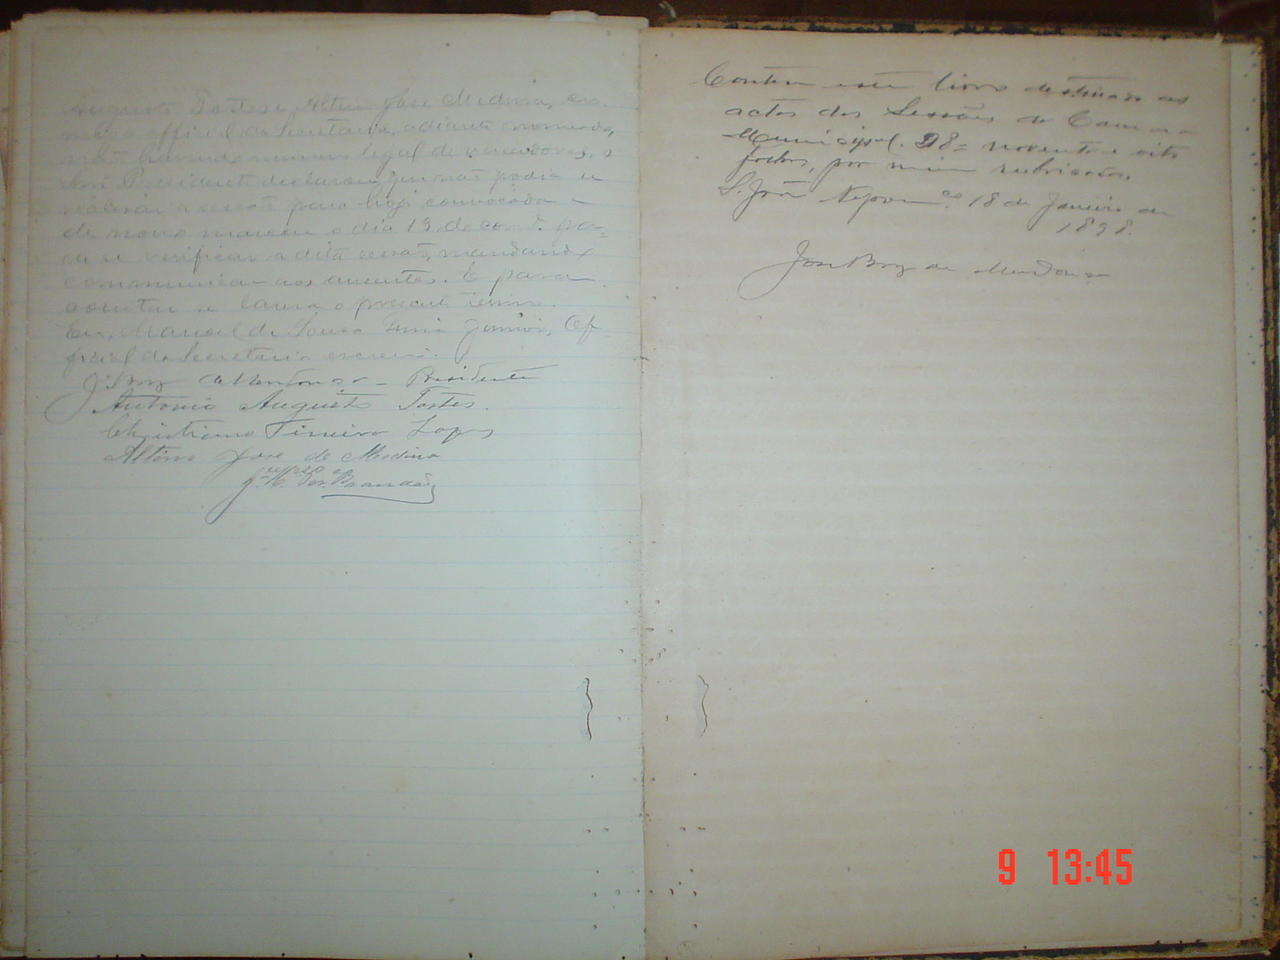 Augusto Tostes e Altino José Medina, co-
migo official da Secretaria, adiante nomeado,
não havendo numero legal de vereadores, o
Snr. Presidente declarou que não podia se
realisar a sessão para hoje convocada e
de novo marcou o dia 13 do corr.e pa-
ra se verificar a dita sessão, mandando
communicar aos auzentes. E para
constar se lavra o presente termo.
Eu, Manoel de Souza Junior, Of-
ficial da Secretaria escrevi.
J. Braz de Mendonça - Presidente
Antonio Augusto Tostes.
Christiano Lopes
Altino José de Medina
Brandão
Contem este livro destinado as
actas das Sessões da Camara
Municipal. 98= noventa e oito
folhas, por mim rubricadas.
S. João Nepom.co 18 de Janeiro de
1898.
José Braz de Mendonça
9 13:45